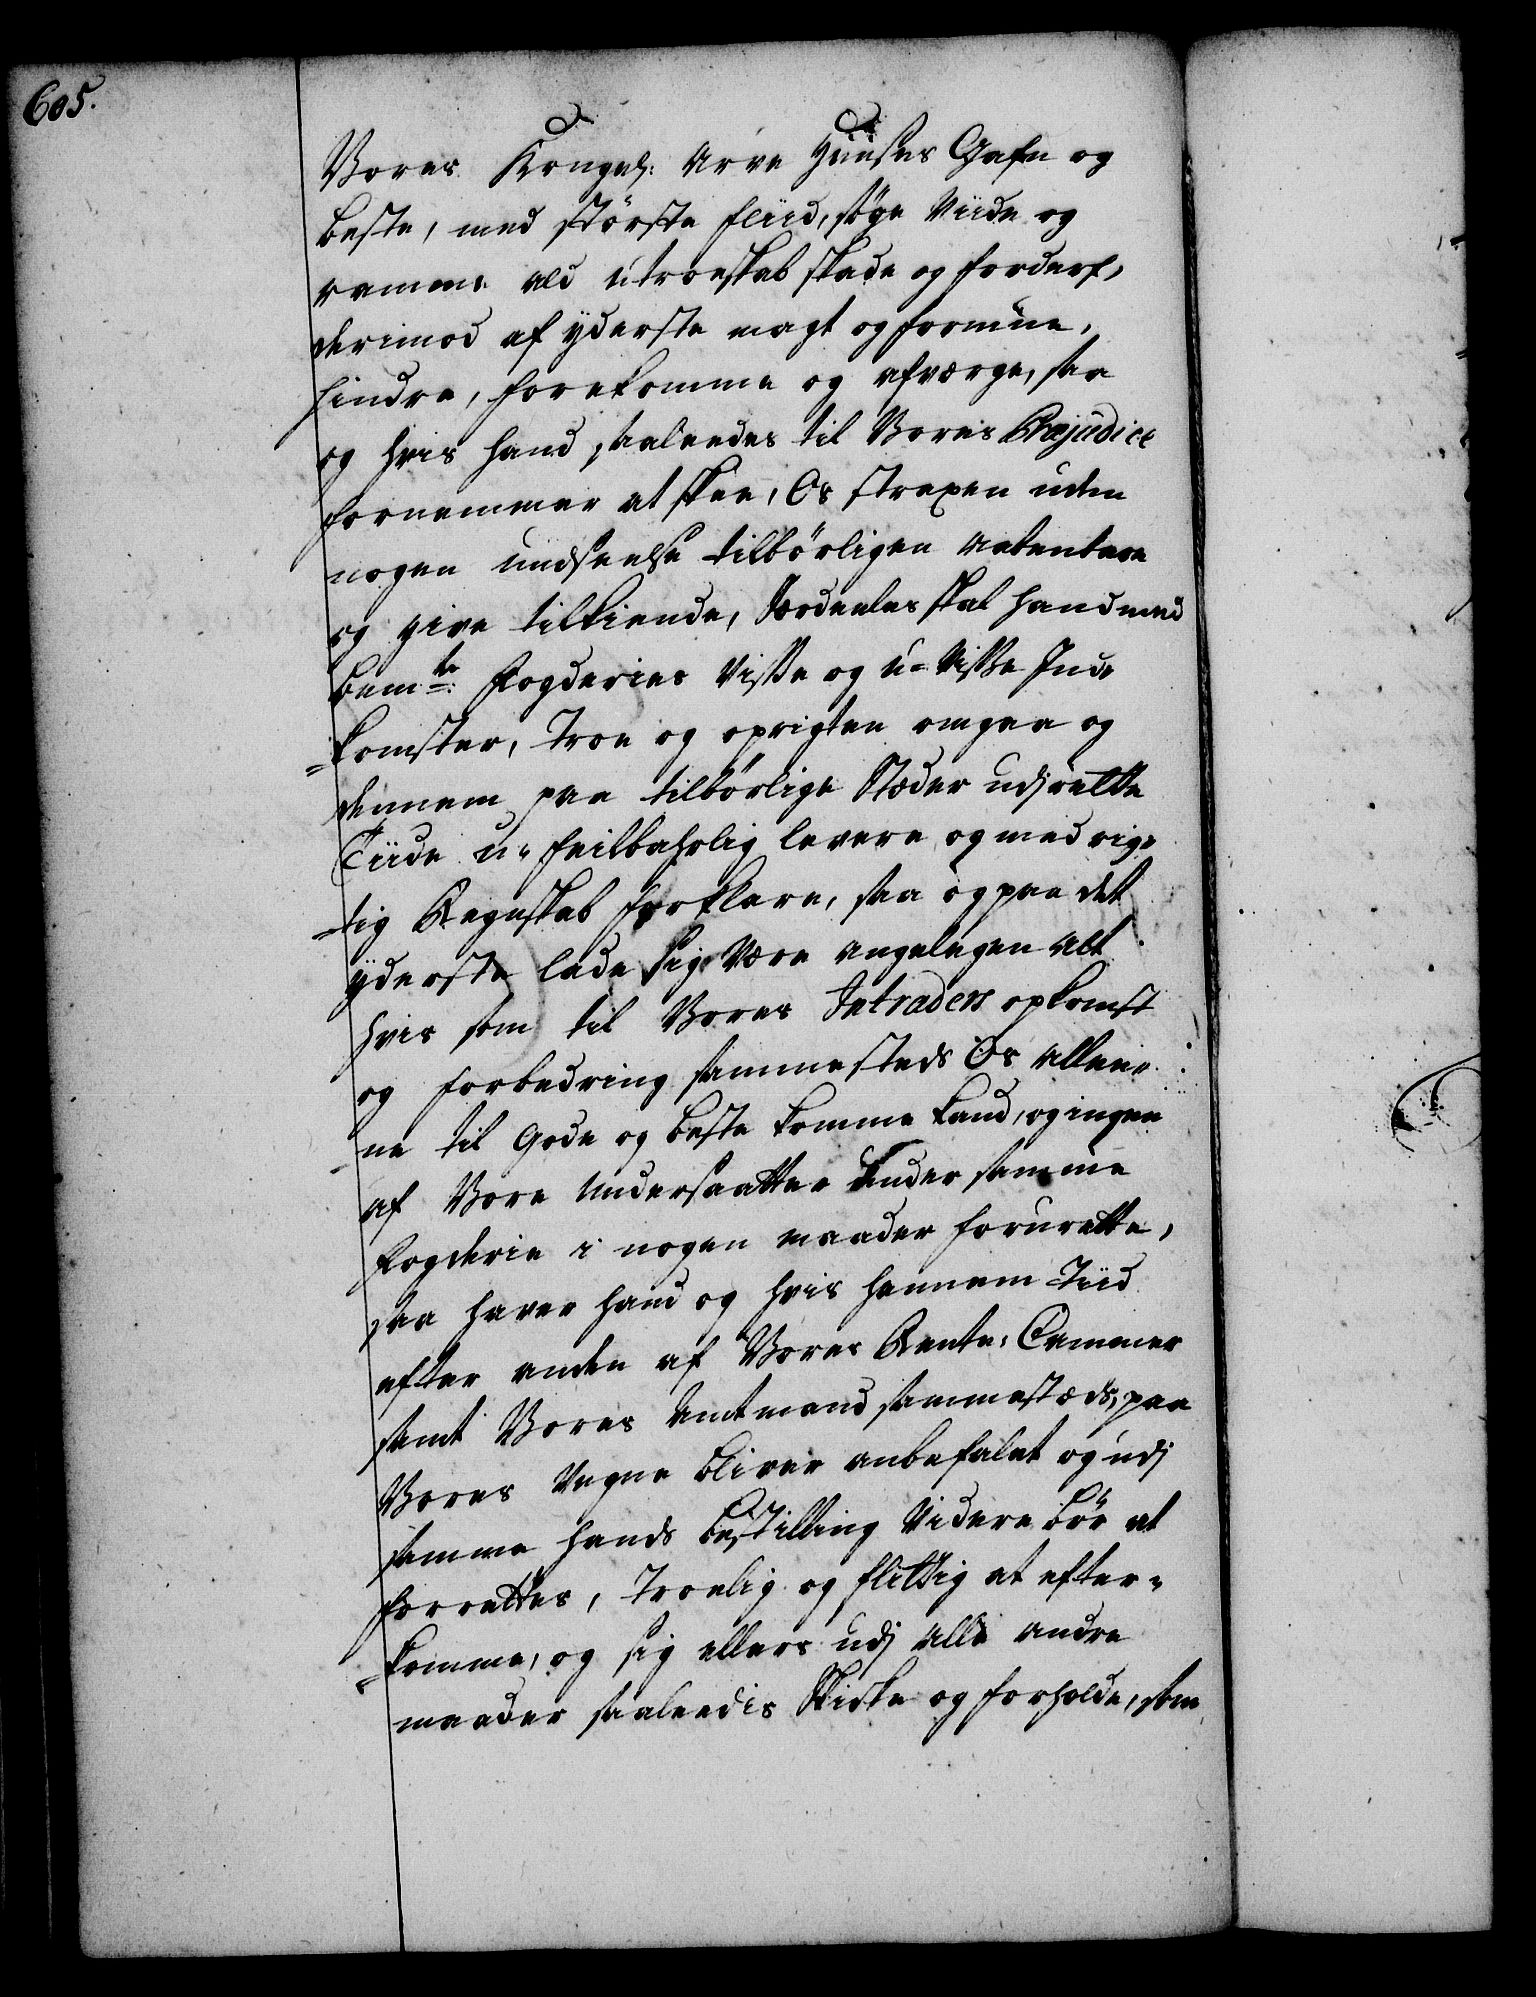 605.
Vores Kongel: Arve Huuses Gafn og
beste, med störste fliid, söge Viide og
ramme ald utroeskab skade og forderf,
derimod af yderste magt og formue,
hindre, forekomme og afværge, saa
og hvis hand saaleedes til Vores Præjudice
fornemmer at skee, Os straxen uden
nogen undseelse tilbörligen aabenbare
og give tilkiende, Særdeeles skal hand med
bemte: Fogderies Visse og u-Visse Ind-
=komster, troe og oprigten omgaae og
dennem paa tilbörlige Stæder udj rette
Tiide u-feilbahrlig levere og med rig-
=tig Regnskab forklare, saa og paa det
yderste lade sig Være angelegen alt
hvis som til Vores Intraders opkomst
og forbedring sammesteds Os alleene
=ne til Gode og beste komme kand, og ingen
af Vore Undersaatter under samme
Fogderie i nogen maader forurette,
saa haver hand og hvis hannem Tiid
efter anden af Vores Rente-Cammer
samt Vores Amtmand sammestæds, paa
Vores Vegne bliver anbefalet og udj
samme hands bestilling Videre bör at
forrettes, Troelig og flittig at efter-
=komme, og sig ellers udj alle andre
maader saaleedis Skicke og forholde, som